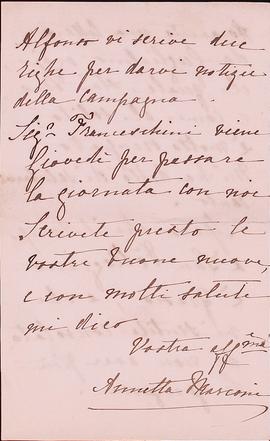 Alfonso vi scrive due
righe per darvi notizie
della campagna.
Sigʳ Franceschini viene
Giovedì per passare
la giornata con noi
Scrivete presto le
vostre buone nuove,
e con molti saluti
mi dico
Vostra affᵐᵃ
Annetta Marconi